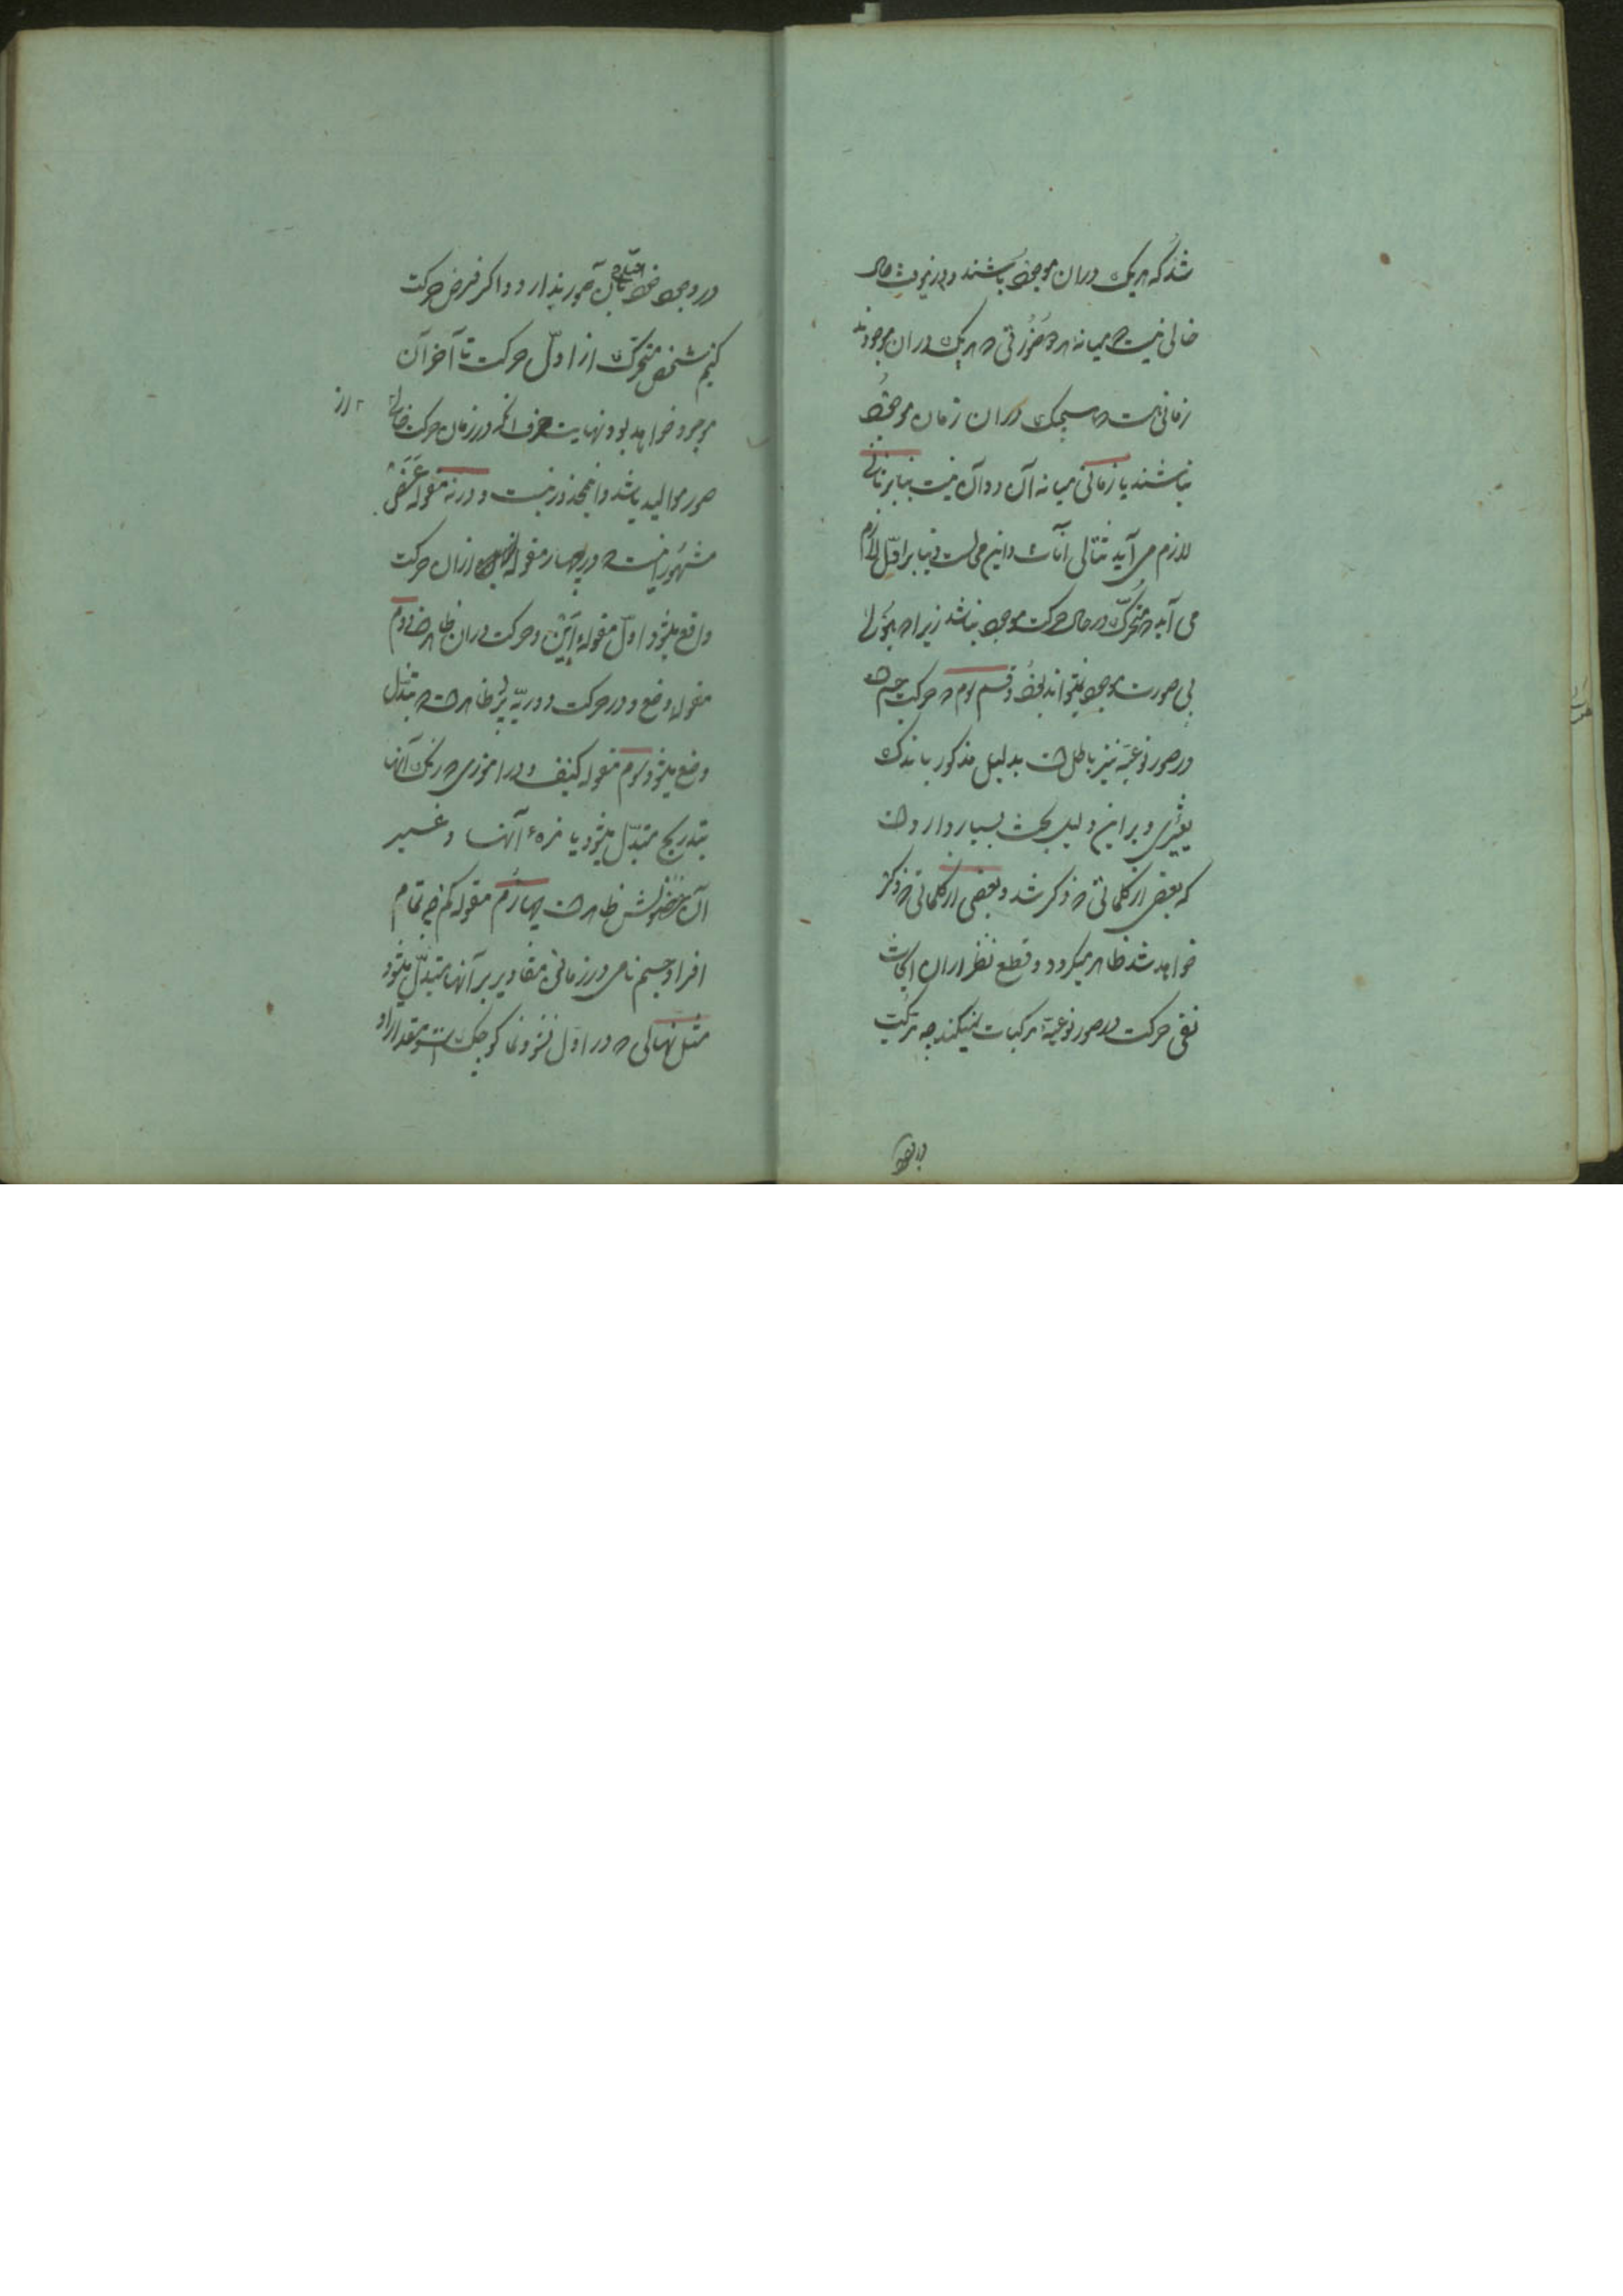 شد که هر یک در ان موجود باشند و در نیوقت حال
خالی نیست که میانه هر دو صورتی که هر یک در ان موجودند
زمانی هست که هیچیک در ان زمان موجود
نباشند یا زمانی میانه آن دو آن نیست بنا بر ثانی
لازم می آید تتالی آنات و این محالست و بنا بر اول لازم
می آید که متحرک در حال حرکت موجود نباشد زیرا که هیولی
بی صورت موجود نمیتواند بود و قسم سوم که حرکت جسم است
در صور نوعیه نیز باطل است بدلیل مذکور باندک
تغییری و بر این دلیل بحث بسیار وارد است
که بعضی از کلماتی که ذکر شد و بعضی از کلماتی که ذکر
خواهد شد ظاهر میگردد و قطع نظر از ان ابحاث
نفی حرکت در صور نوعیه مرکبات نمیکند چه مرکب
در وجود خود احتیاج بآن صور ندارد و اگر فرض حرکت
کنیم شخص متحرک از اول حرکت تا آخر آن
موجود خواهد بود نهایت حرف آنکه در زمان حرکت خالی از
صور موالید باشد و این محذور نیست و در نه مقوله عرض
مشهور اینست که در چهار مقوله از ان حرکت
واقع میشود اول مقوله این و حرکت در ان ظاهر است دوم
مقوله وضع و در حرکت دوریه پر ظاهر است که تبدل
وضع میشود سوم مقوله کیف و در اموری که رنک آنها
بتدریج متبدل میشود یا مزه آنها و غیر
آن حصولش ظاهر است چهارم مقوله کم چه تمام
افراد جسم نامی در زمانی مقادیر بر آنها متبدل میشود
مثل نهالی که در اول نشو و نما کوچک است و مقدار او